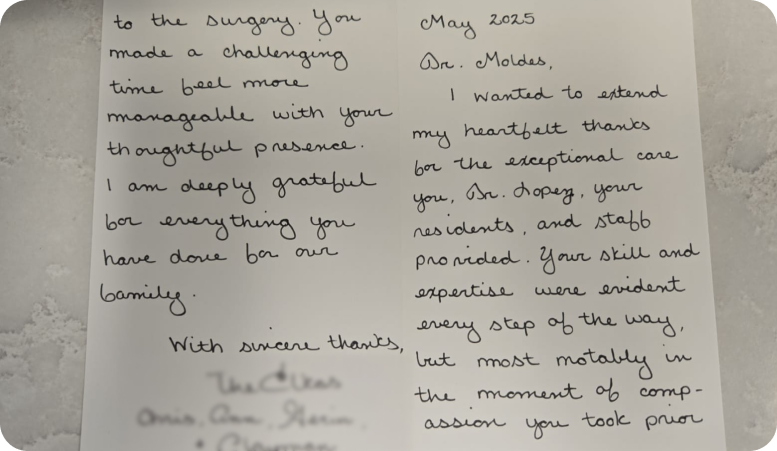 May 2025
Dr. Moldes,
I wanted to extend
my heartfelt thanks
for the exceptional care
you, Dr. Lopez, your
residents, and staff
provided. Your skill and
expertise were evident
every step of the way,
but most notably in
the moment of comp-
assion you took prior
to the surgery. You
made a challenging
time feel more
manageable with your
thoughtful presence.
I am deeply grateful
for everything you
have done for our
family.
With sincere thanks,